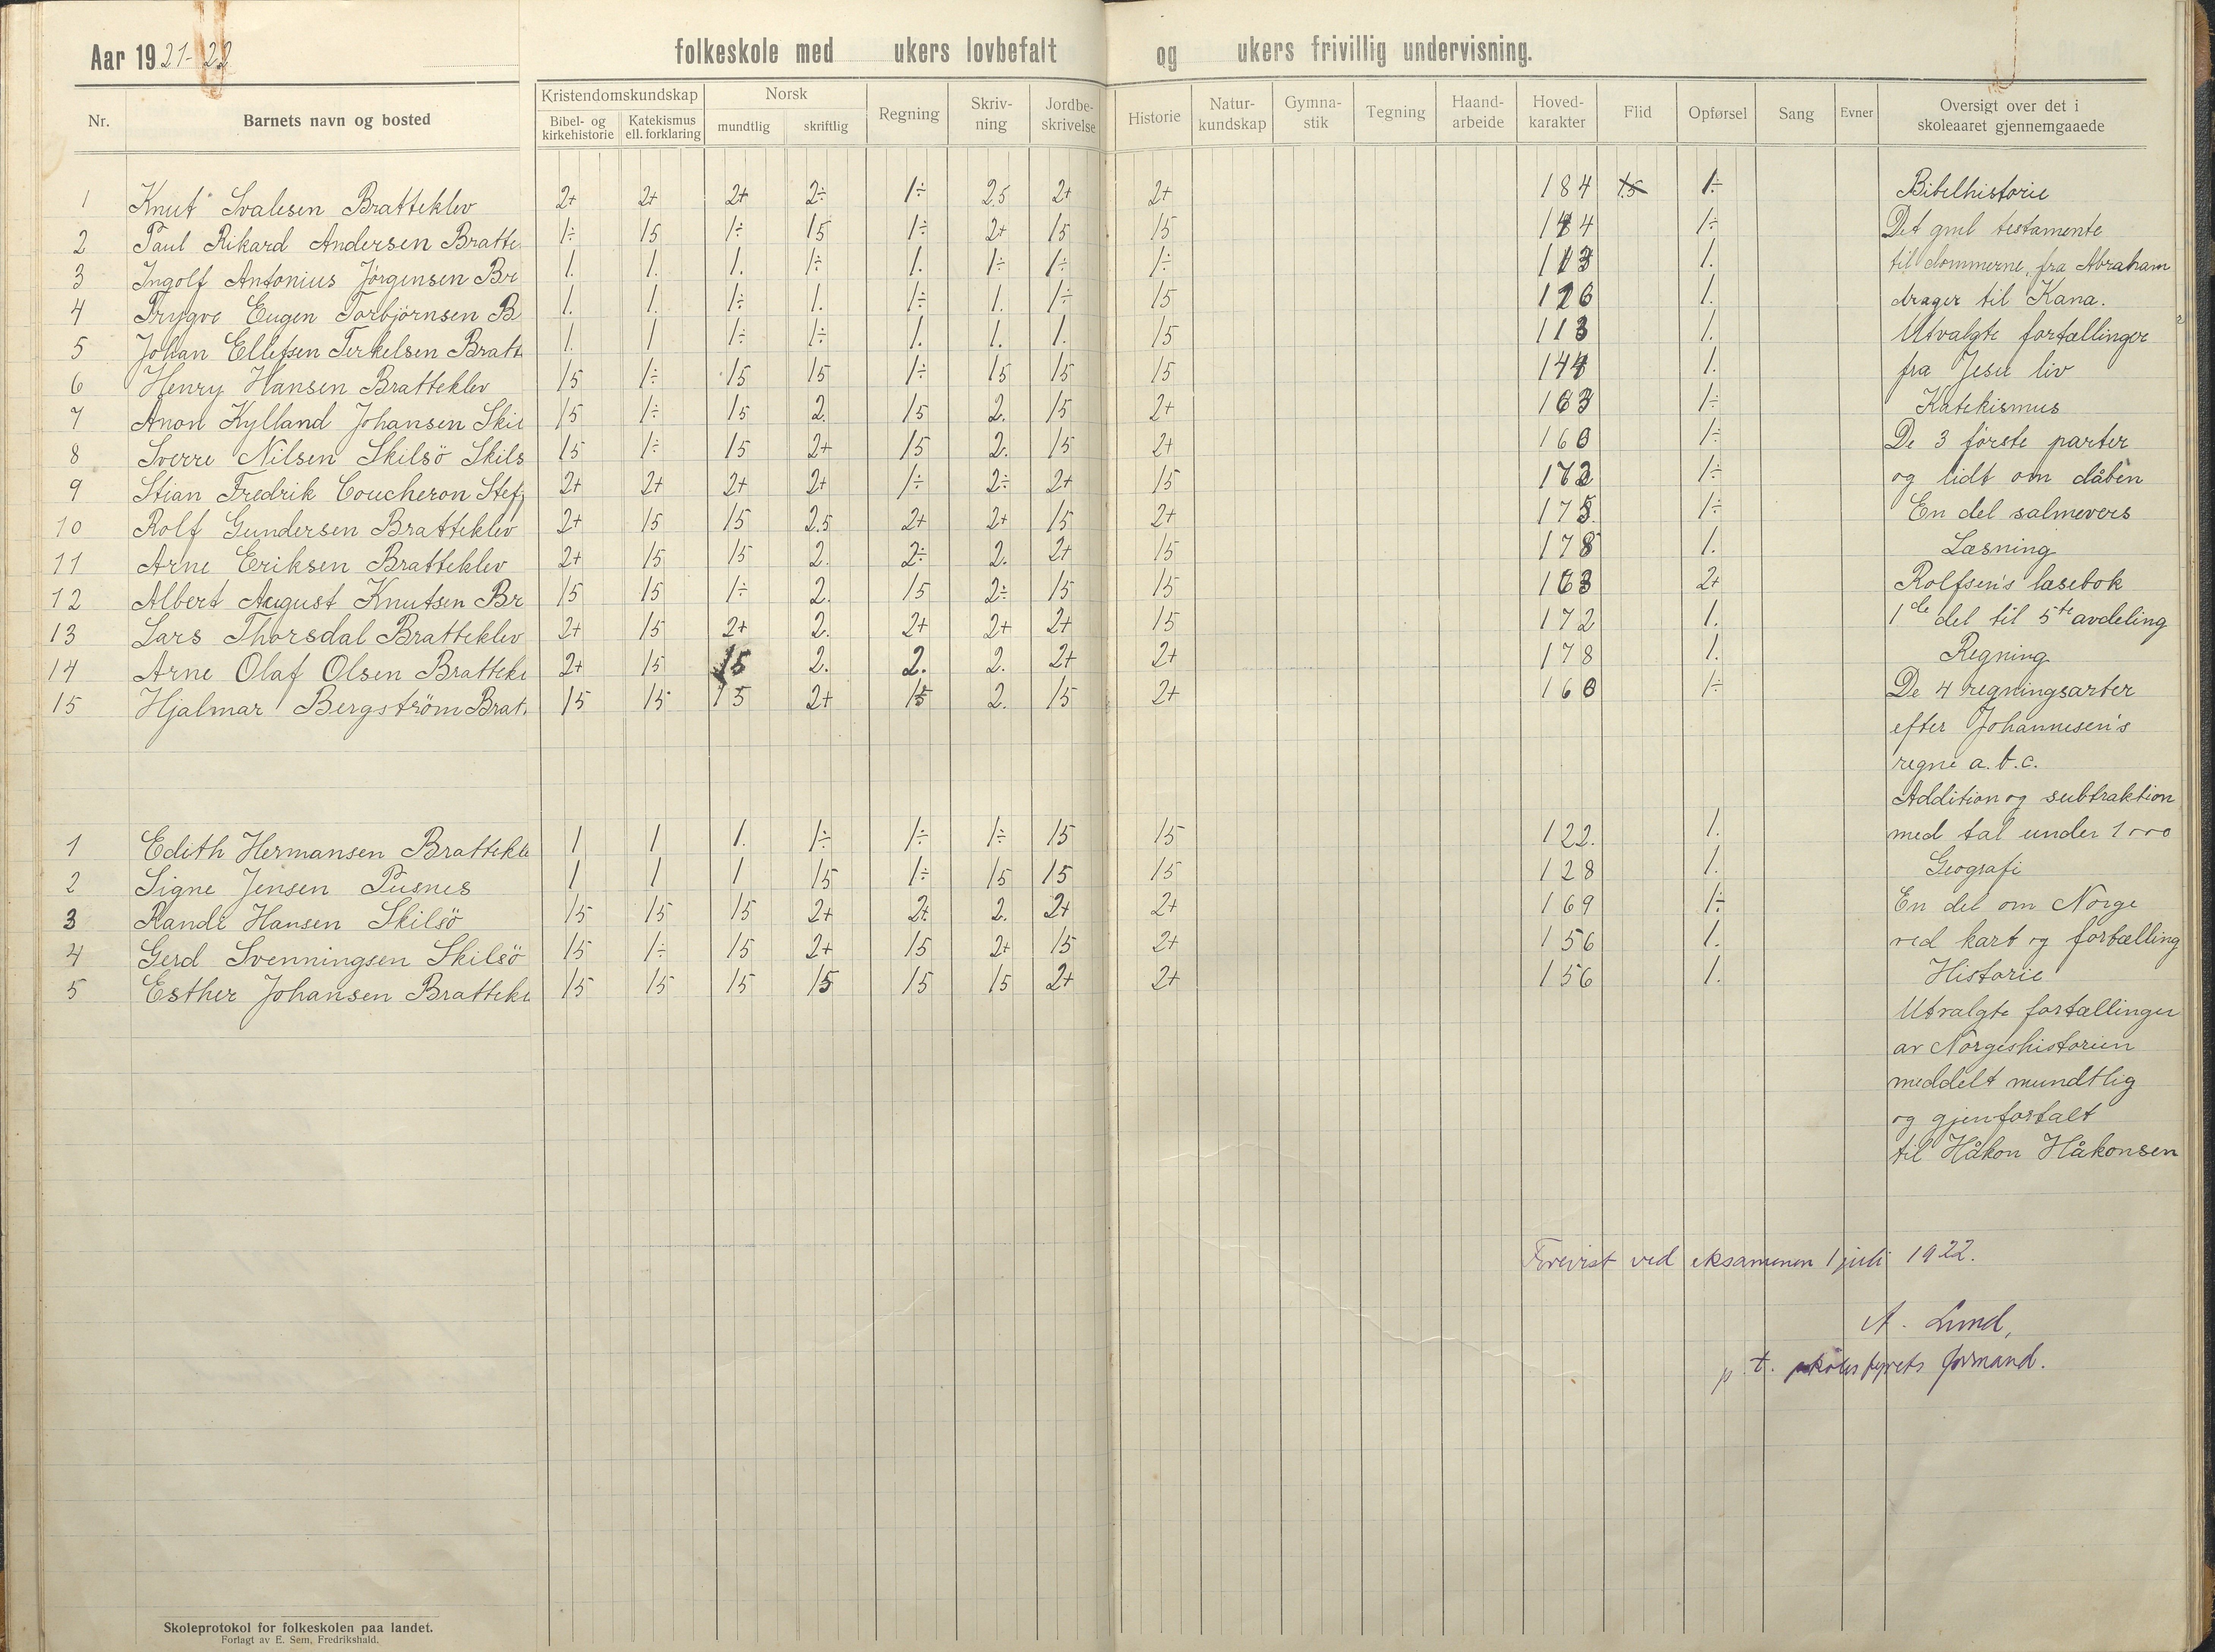 Aar 1921-22 folkeskole med ukers lovbefalt og ukers frivillig undervisning.
Nr. Barnets navn og bosted Kristendomskundskap Bibel- og kirkehistorie Katekismus ell. forklaring Norsk mundtlig skriftlig Regning Skriv-ning Jordbe-skrivelse Historie Natur-kundskap Gymna-stik Tegning Haand-arbeide Hoved-karakter Flid Opførsel Sang Evner Oversigt over det i skoleaaret gjennemgaaede
1 Knut Svalesen Bratteklev 2+ 2+ 2+ 2÷ 1÷ 2,5 2+ 2+ 184 1,5 1÷ Bibelhistorie
2 Paul Rikard Andersen Bratte 1÷ 15 1÷ 15 1÷ 2+ 15 15 144 1÷ Det gml testamente
3 Ingolf Antonius Jörgensen Br 1. 1. 1. 1÷ 1. 1÷ 1÷ 1÷ 113 1. til dommerne, fra Abraham
4 Trygve Eugen Torbjörnsen B 1. 1. 1÷ 1. 1÷ 1. 1÷ 15 126 1. drager til Kana.
5 Johan Ellefsen Terkelsen Bratt 1. 1 1÷ 1÷ 1. 1. 1. 15 113 1. Utvalgte fortællinger
6 Henry Hansen Bratteklev 15 1÷ 15 15 1÷ 15 15 15 144 1. fra Jesu liv
7 Anon Kylland Johansen Skil 15 1÷ 15 2. 15 2. 15 2+ 163 1÷ Katekismus
8 Sverre Nilsen Skilsö Skils 15 1÷ 15 2+ 15 2. 15 2+ 160 1÷ De 3 förste parter
9 Stian Fredrik Coucheron Stef 2+ 2+ 2+ 2+ 1÷ 2÷ 2+ 15 172 1÷ og lidt om dåben
10 Rolf Gundersen Bratteklev 2+ 15 15 2.5 2+ 2+ 15 2+ 175 1÷ En del salmevers
11 Arne Eriksen Bratteklev 2+ 15 15 2. 2÷ 2. 2+ 15 178 1. Læsning
12 Albert August Knutsen Br 15 15 1÷ 2. 15 2÷ 15 15 163 2+ Rolfsen's læsebok
13 Lars Thorsdal Bratteklev 2+ 15 2+ 2. 2+ 2+ 2+ 15 172 1. 1de del til 5te avdeling
14 Arne Olaf Olsen Brattekl 2+ 15 15 2. 2. 2. 2+ 2+ 178 1. Regning
15 Hjalmar Bergström Brat. 15 15 15 2+ 15 2. 15 2+ 160 1÷ De 4 regningsarter
efter Johannesen's
regne a.b.c.
Addition og subtraktion
1 Edith Hermansen Brattekle 1 1 1. 1÷ 1÷ 1÷ 15 15 122. 1. med tal under 1000
2 Signe Jensen Pusnes 1 1 1 15 1÷ 15 15 15 128 1. Geografi
3 Randi Hansen Skilsö 15 15 15 2+ 2+ 2. 2+ 2+ 169 1÷ En del om Norge
4 Gerd Svenningsen Skilsö 15 1÷ 15 2+ 15 2+ 15 2+ 156 1. ved kart og fortælling
5 Esther Johansen Brattekl 15 15 15 15 15 15 2+ 2+ 156 1. Historie
Utvalgte fortællinger
av Norgeshistorien
meddelt mundtlig
og gjenfortalt
til Håkon Håkonsen
Forevist ved eksamenen 1 juli 1922.
A. Lund,
p t. skolestyrets formand.
Skoleprotokol for folkeskolen paa landet.
Forlagt av E. Sem, Fredrikshald.